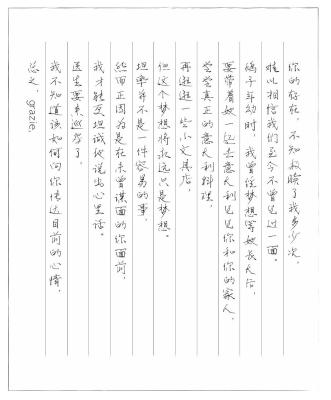 你的存在，不知救贖了我多少次，
難以相信我們至今不曾見过一面。
鴿子年幼時，我曾经梦想等她長大后，
要带着她一起去意大利見見你和你的家人，
尝尝真正的意大利料理，
再逛逛一些小文具店，
但这个梦想将永远只是梦想。
坦率并不是一件容易的事，
然而正因为是在未曾谋面的你面前，
我才能坦诚地说出心里话。
医生要来巡房了，
我不知道该如何向你传达目前的心情，
总之，grazie。